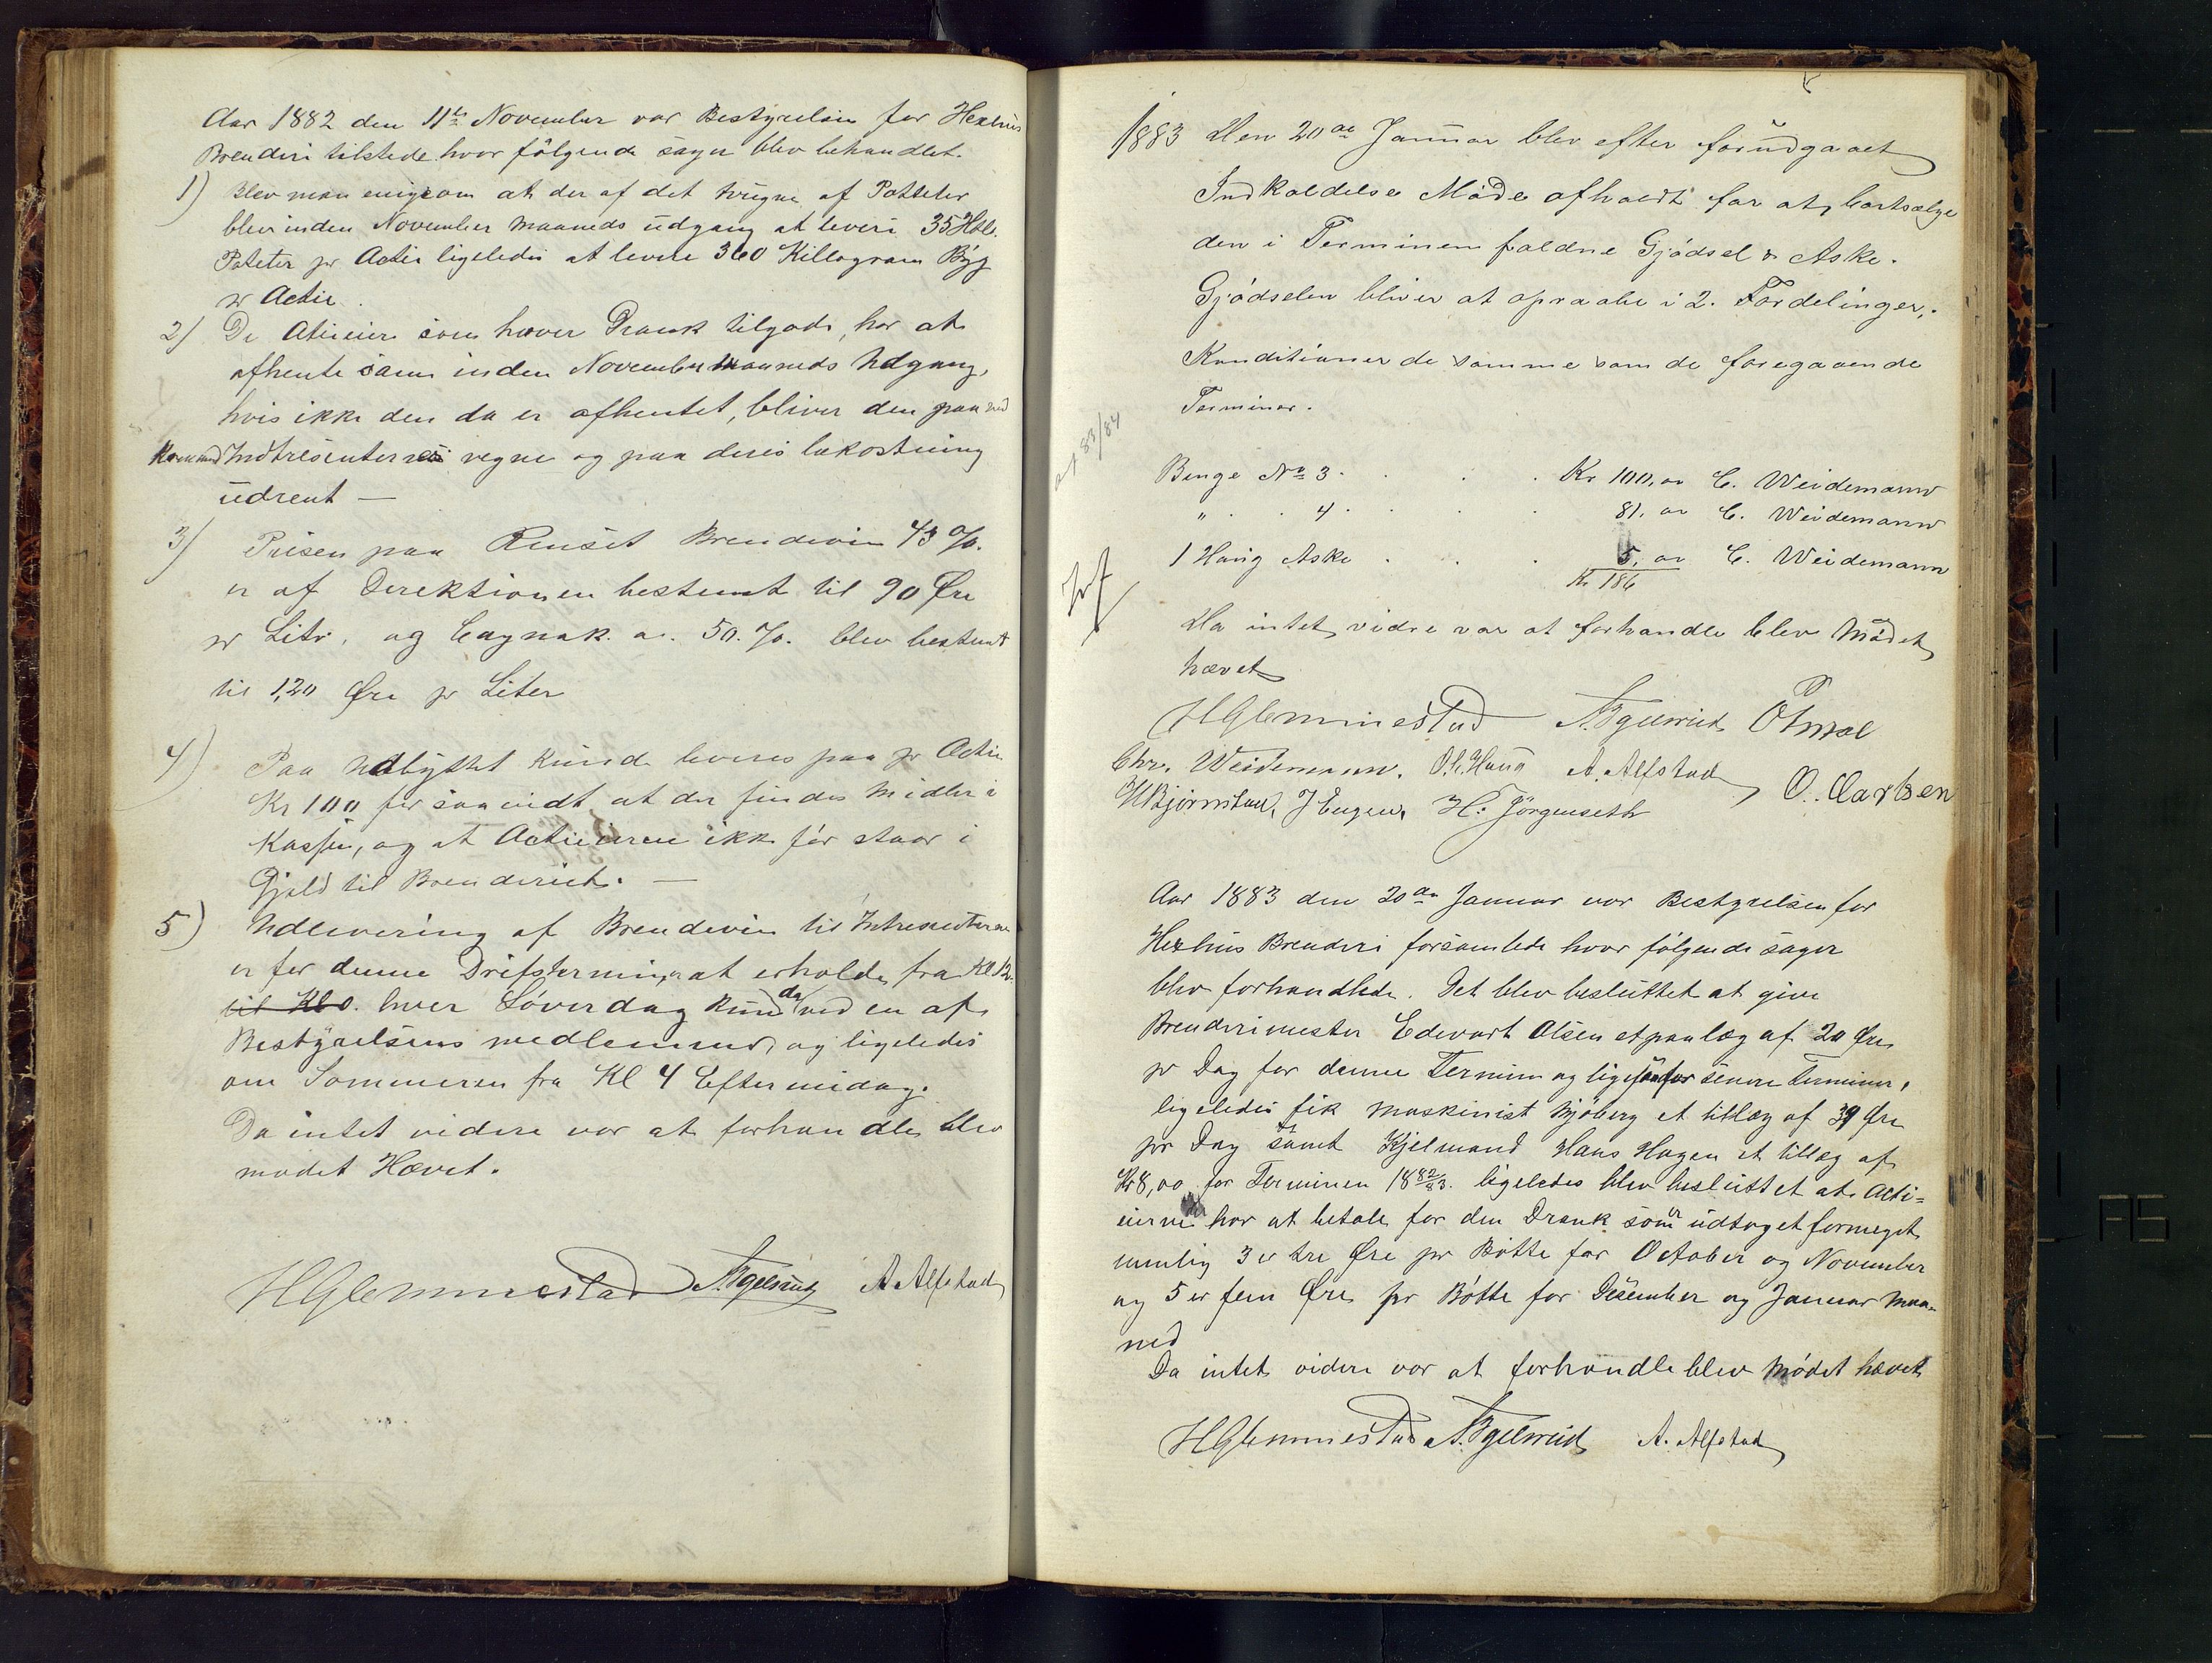 Aar 1882 den 11te November var Bestyrelsen for Hexhus
Brenderi tilstede hvor följende sager blev behandlet.
1) Blev man enig om at der af det tvugne af Potteter
blev inden November Maaneds udgang at levere 35 Hktl.
Poteter pr Actie ligeledes at levere 360 Killogram Byg
pr Actie.
2) De Atieeier som haver Drank tilgode, har at
afhente samme inden November Maaneds Udgang,
hvis ikke den da er afhentet, bliver den paa
Indtresenternes regne og paa deres bekostning
udrent —
3) Prisen paa Renset Brendevin 43 %.
er af Direktionen bestemt til 90 Øre
pr Litr. og Cognak. a. 50. %. blev bestemt
til 1,20 Øre pr Liter
4) Paa Udbyttet kund leveres paa pr Actie
Kr 100 for saavidt at der findes Midler i
Kassen, og at Actieeieren ikke för staar i
Gjeld til Brenderiet. —
5) Udlevering af Brendevin til Intresenterne
er for denne Drifstermin at erholde fra Kl 12.
til Kl 0. hver Löverdag kund da ved en af
Bestyrelsens medlemmer, og ligeledes
om Sommeren fra Kl 4 Eftermidag.
Da intet videre var at forhandle blev
mødet Hævet.
HGlemmestad N. Bgelsrud A Alfstad
1883 Den 20de Januar blev efter forudgaaet
Indkaldelse Möde afholdt for at bortsælge
den i Terminen faldne Gjödsel & Aske.
Gjödselen bliver at opraabe i 2. Fordelinger.
Konditioner de samme som de foregaaende
Terminer.
af 83/84
Binge No 3 . . . Kr 100,00 C. Weidemann
" . . 4 . . . 81,00 C. Weidemann
1 Haug Aske . . . 5,00 C. Weidemann
Kr 186
Da intet vidre var at forhandle blev Mödet
hævet
HGlemmestad N. Bgelsrud
Chr. Weidemann. O. Haug A. Alfstad O. Carlsen
HBjørnstad, J Engen, H. Jörgenseth
Aar 1883 den 20de Januar var Bestyrelsen for
Hexhus Brenderi forsamlede hvor fölgende sager
blev forhandlede. Det blev besluttet at give
Brenderimester Edevart Olsen et paalæg af 20 Øre
pr Dag for denne Termin og ligesaa for senere Terminer,
ligeledes fik Maskinist Mjöberg et tillæg af 39 Øre
pr Dag samt Kjelmand Hans Hagen et tillæg af
Kr 8,00 for Terminen 1882/83. ligeledes blev besluttet at Acti=
eierne har at betale for den Drank som er udtaget formeget
nemlig 3 er tre Øre pr Bötte for October og November
og 5 er fem Øre pr Bötte for Desember og Januar Maa-
ned
Da intet videre var at forhandle blev Mödet hævet
HGlemmestad N. Bgelsrud A. Alfstad